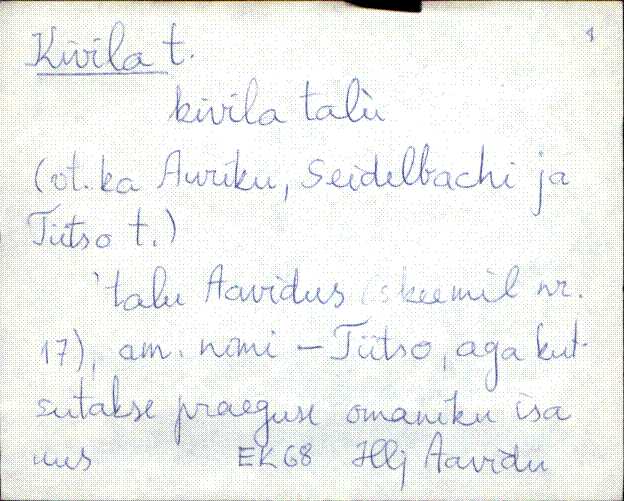 Kivila t.
kivila talù
(vt. ka Auriku, Seidelbachi ja
Tiitso t.)
'talu Aavidus (skeemil nr.
17), am. nimi – Tiitso, aga kut-
sutakse praeguse omaniku isa
EK 68 Hlj Aavidu